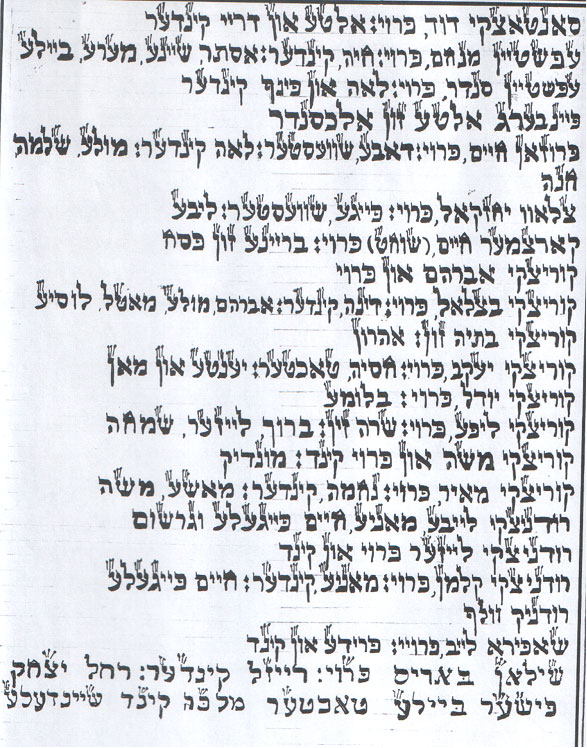 סאנטאצקי דוד, פרוי: אלטע און דריי קינדער
עפשטיין מנחם, פרוי: חיה, קינדער: אסתר, שיינע, מערע, ביילע
עפשטיין סנדר, פרוי: לאה און פינף קינדער
פיינבערג אלטע זון אלכסנדר
פרוזאן חיים, פרוי: דאבע, שוועסטער: לאה קינדער: מולע, שלמה,
חנה
צלאוו יחזקאל, פרוי: פייגע, שוועסטער: ליבע
קארצמער חיים, (שוחט) פרוי: בריינע זון פסח
קוריצקי אברהם און פרוי
קוריצקי בצלאל, פרוי: דינה, קינדער: אברהם, מולע, מאטל, לוסיע
קוריצקי בתיה זון: אהרון
קוריצקי יעקב, פרוי: חסיה, טאכטער: יענטע און מאן
קוריצקי יודל, פרוי: בלומע
קוריצקי ליפע, פרוי: שרה זון: ברוך לייזער, שמחה
קוריצקי משה און פרוי קינד: מונדיק
קוריצקי מאיר, פרוי: נחמה, קינדער: מאשע, משה
רודניצקי לייבע מאניע, חיים פייגעלע וגרשום
רודניצקי לייזער פרוי און קינד
רודניצקי קלמן, פרוי: מאניע, קינדער: חיים פייגעלע
רודניק וולף
שאפירא לייב, פרויי: פרידע און קינד
שילאן באריס פרוי: רייזל קינדער: רחל יצחק
פישער ביילע טאכטער מלכה קינד שיינדעלע